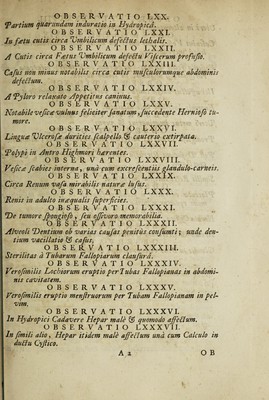 OBSERVATIO LXX.
Partium quarundam induratio in Hydropicâ.
OBSERVATIO LXXI.
In fœtu cutis circa Umbilicum defectus lethalis.
OBSERVATIO LXXII.
A Cutis circa Fœtus Umbilicum defectu Viscerum profusio.
OBSERVATIO LXXIII.
Casus non minus notabilis circa cutis musculorumque abdominis
defectum.
OBSERVATIO LXXIV.
A Pyloro relaxato Appetitus caninus.
OBSERVATIO LXXV.
Notabile vesicæ vulnus feliciter sanatum, succedente Hernioso tu-
more.
OBSERVATIO LXXVI.
Linguæ Ulcerosæ durities scalpello & cauterio extirpata.
OBSERVATIO LXXVII.
Polypi in Antro Highmori hærentes.
OBSERVATIO LXXVIII.
Vesicæ scabies interna, unà cum excrescentiis glandulo-carneis.
OBSERVATIO LXXIX.
Circa Renum vasa mirabilis naturæ lusus.
OBSERVATIO LXXX.
Renis in adulto inæqualis superficies.
OBSERVATIO LXXXI.
De tumore spongioso, seu osseo memorabilia.
OBSERVATIO LXXXII.
Alveoli Dentium ob varias causas penitus consumti; unde den-
tium vacillatio & casus.
OBSERVATIO LXXXIII.
Sterilitas à Tubarum Fallopiarum clausurâ.
OBSERVATIO LXXXIV.
Verosimilis Lochiorum eruptio per Tubas Fallopianas in abdomi-
nis cavitatem.
OBSERVATIO LXXXV.
Verosimilis eruptio menstruorum per Tubam Fallopianam in pel-
vim.
OBSERVATIO LXXXVI.
In Hydropici Cadavere Hepar malè & quomodo affectum.
OBSERVATIO LXXXVII.
In simili alio, Hepar itidem malè affectum unà cum Calculo in
ductu Cystico.
A 2 OB